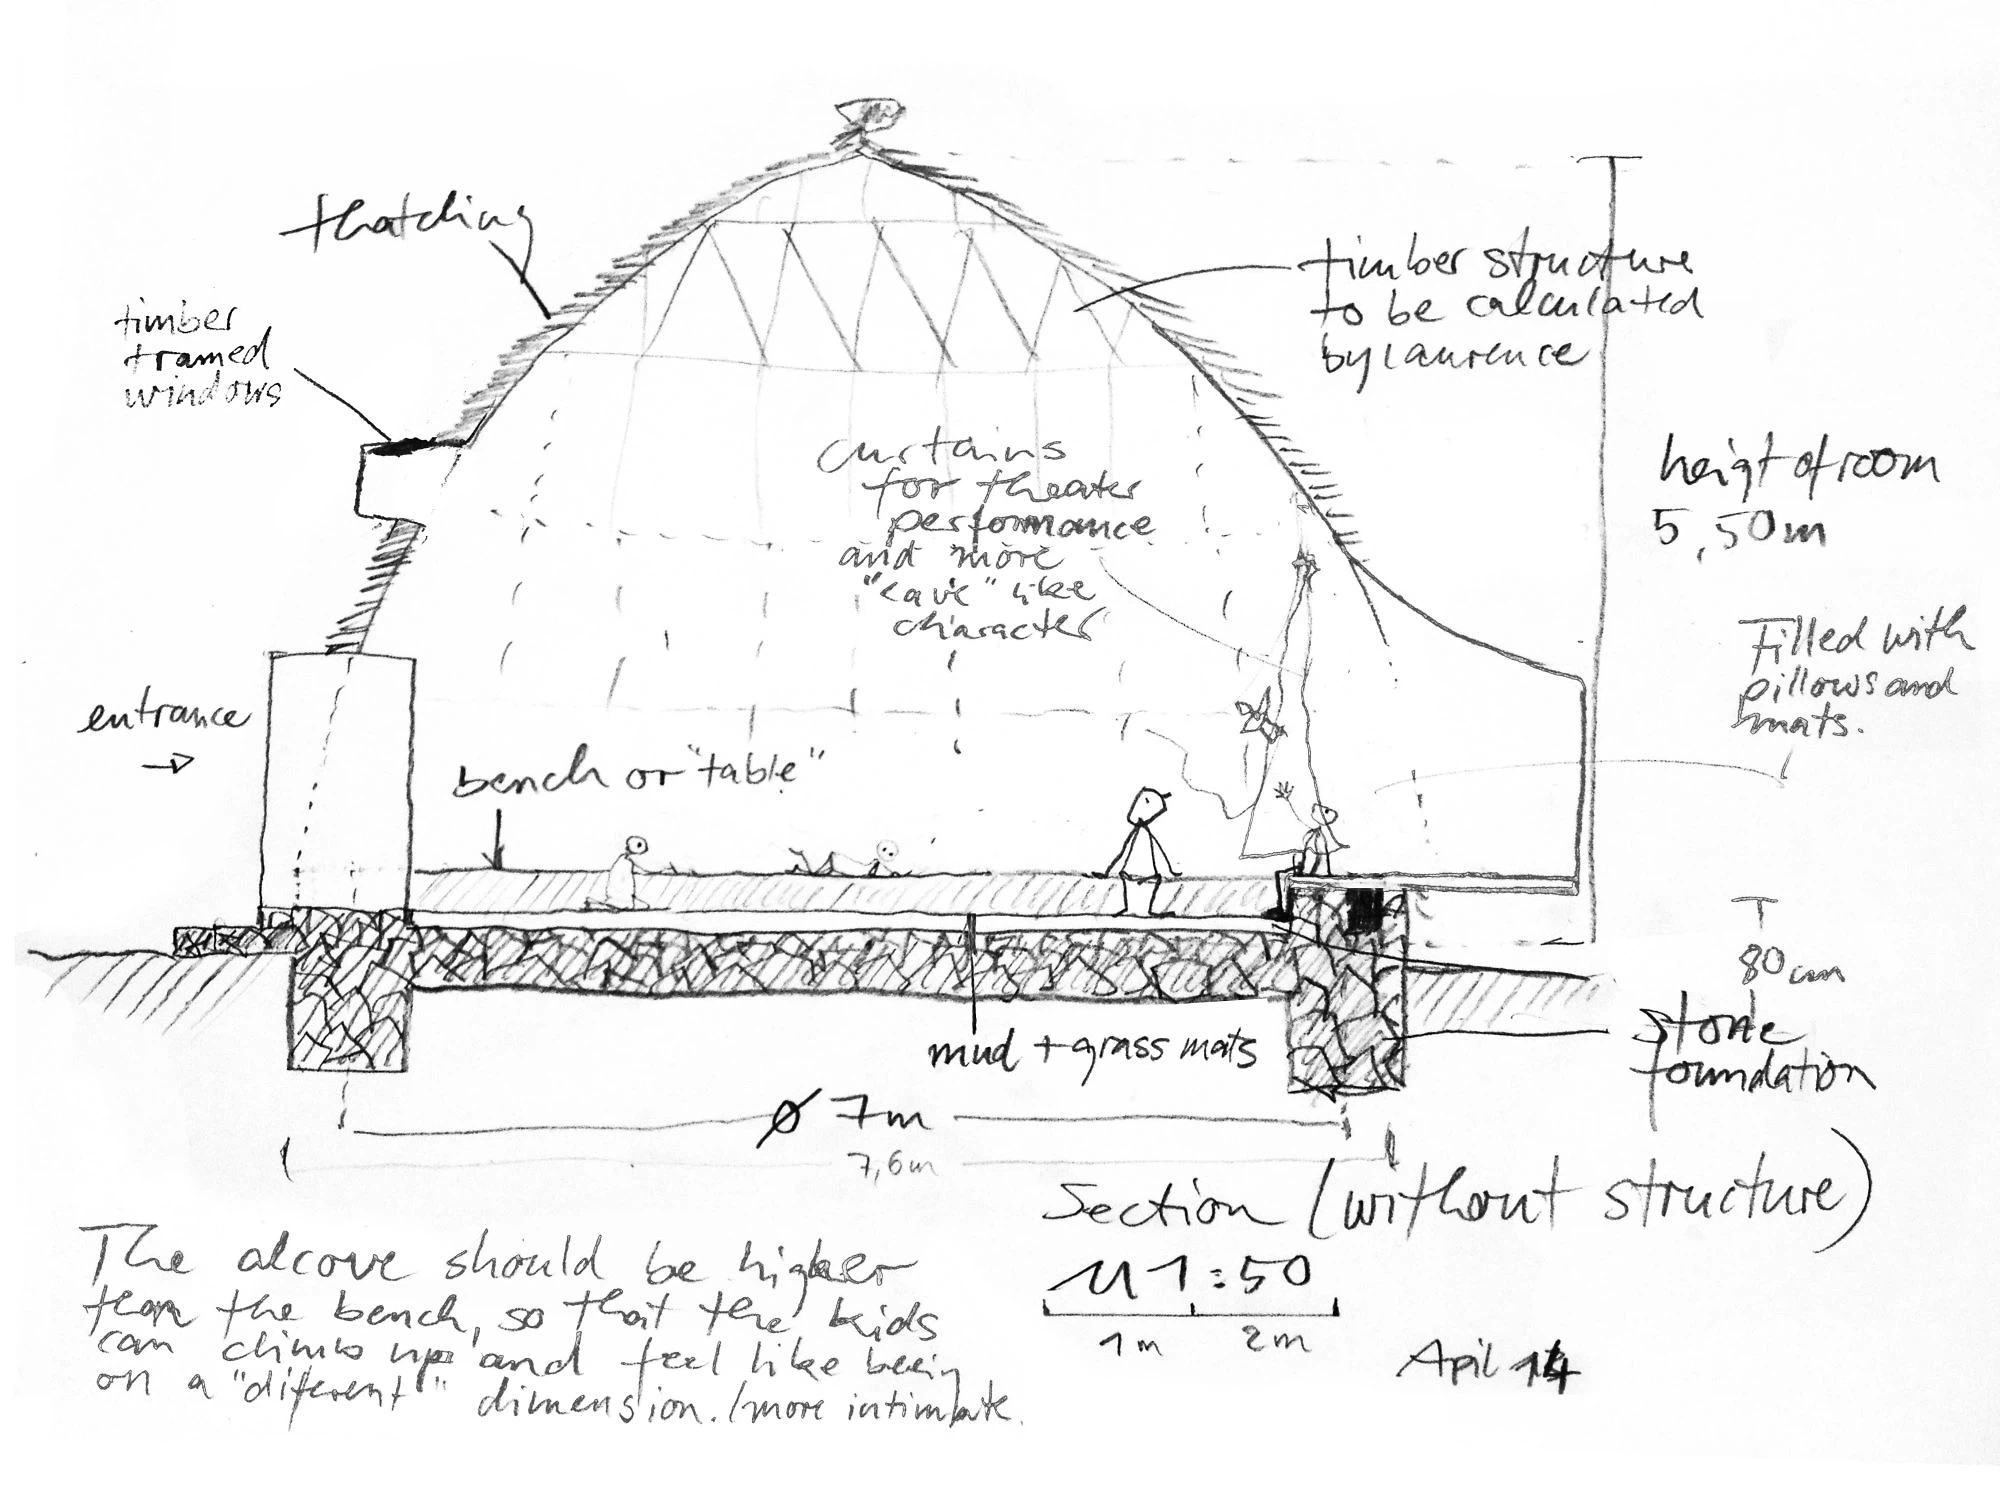 thatching
timber
framed
windows
timber structure
to be calculated
by laurence
curtains
for theater
performance
and more
"cave" like
character
heigt of room
5,50m
Filled with
pillows and
mats.
entrance
bench or "table"
80cm
stone
foundation
mud + grass mats
Ø 7m
7,6m
Section (without structure)
M 1:50
1m 2m
April 14
The alcove should be higher
than the bench, so that the kids
can climb up and feel like being
on a "diferent" dimension. / more intimate.